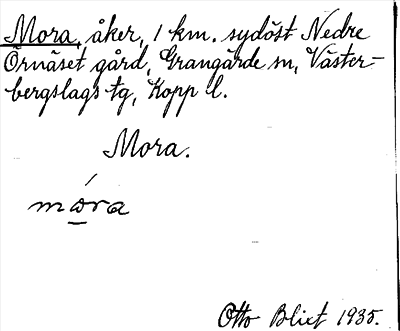 Mora, åker, 1 km. sydöst Nedre
Örnäset gård, Grangärde sn, Väster-
bergslags tg, Kopp l.
Mora.
móra
Otto Blixt 1935.